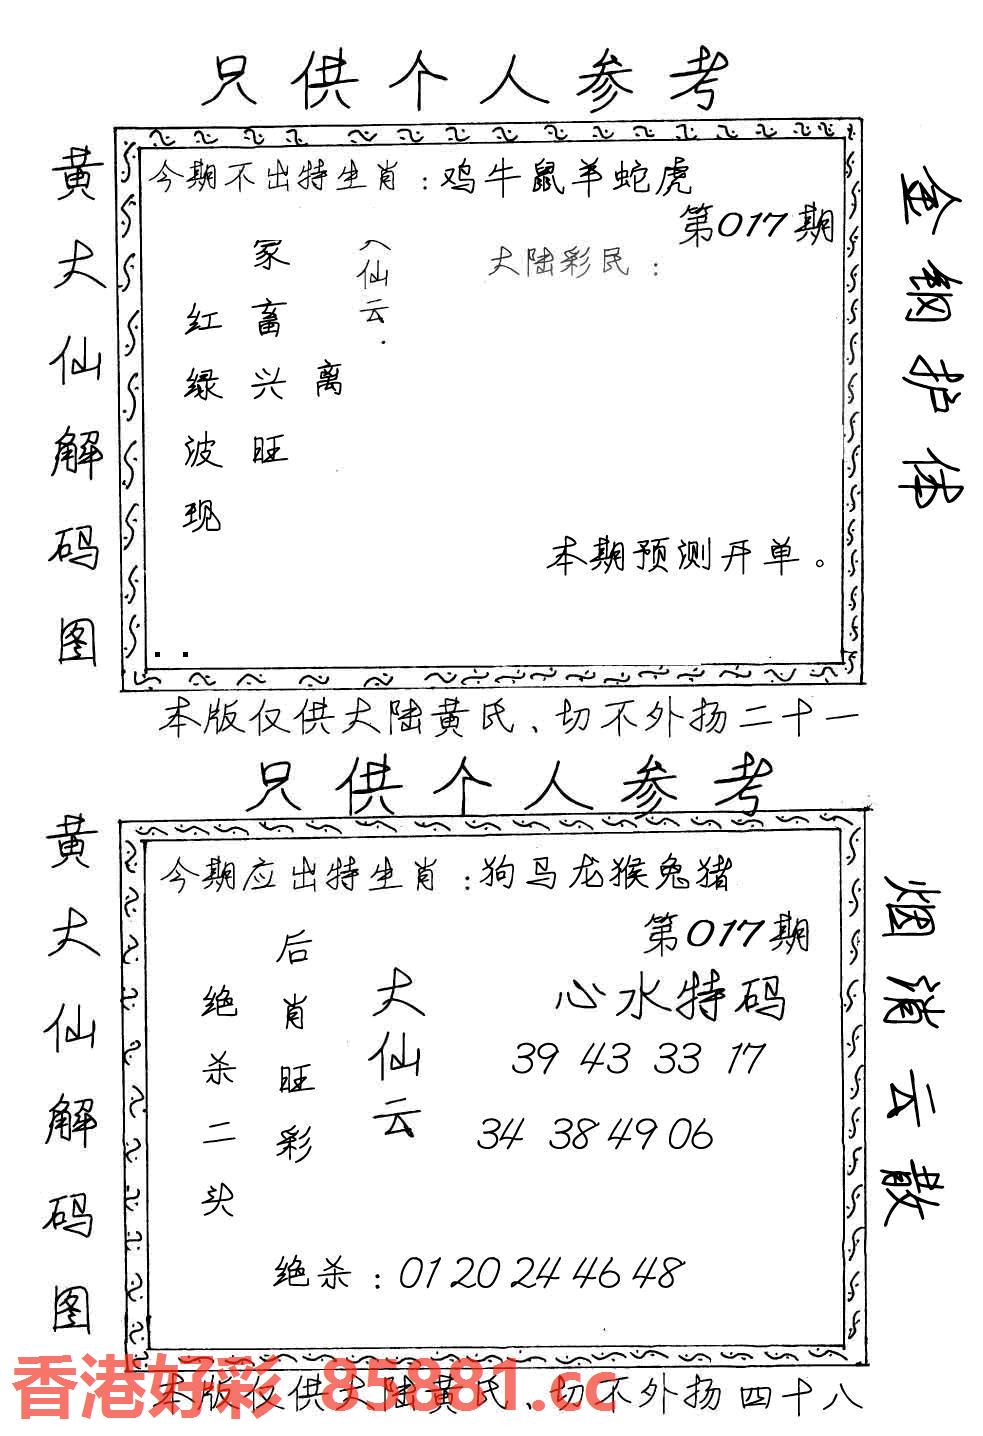 只供个人参考
黄大仙解码图
今期不出特生肖：鸡牛鼠羊蛇虎
第017期
大陆彩民：
仙云.
家畜兴旺
红绿波现
离
本期预测开单。
金钢护体
本版仅供大陆黄氏、切不外扬二十一
只供个人参考
黄大仙解码图
今期应出特生肖：狗马龙猴兔猪
第017期
大仙云
后肖旺彩
绝杀二头
心水特码
39 43 33 17
34 38 49 06
绝杀：01 20 24 46 48
烟消云散
香港好彩 85881.cc
本版仅供大陆黄氏、切不外扬四十八